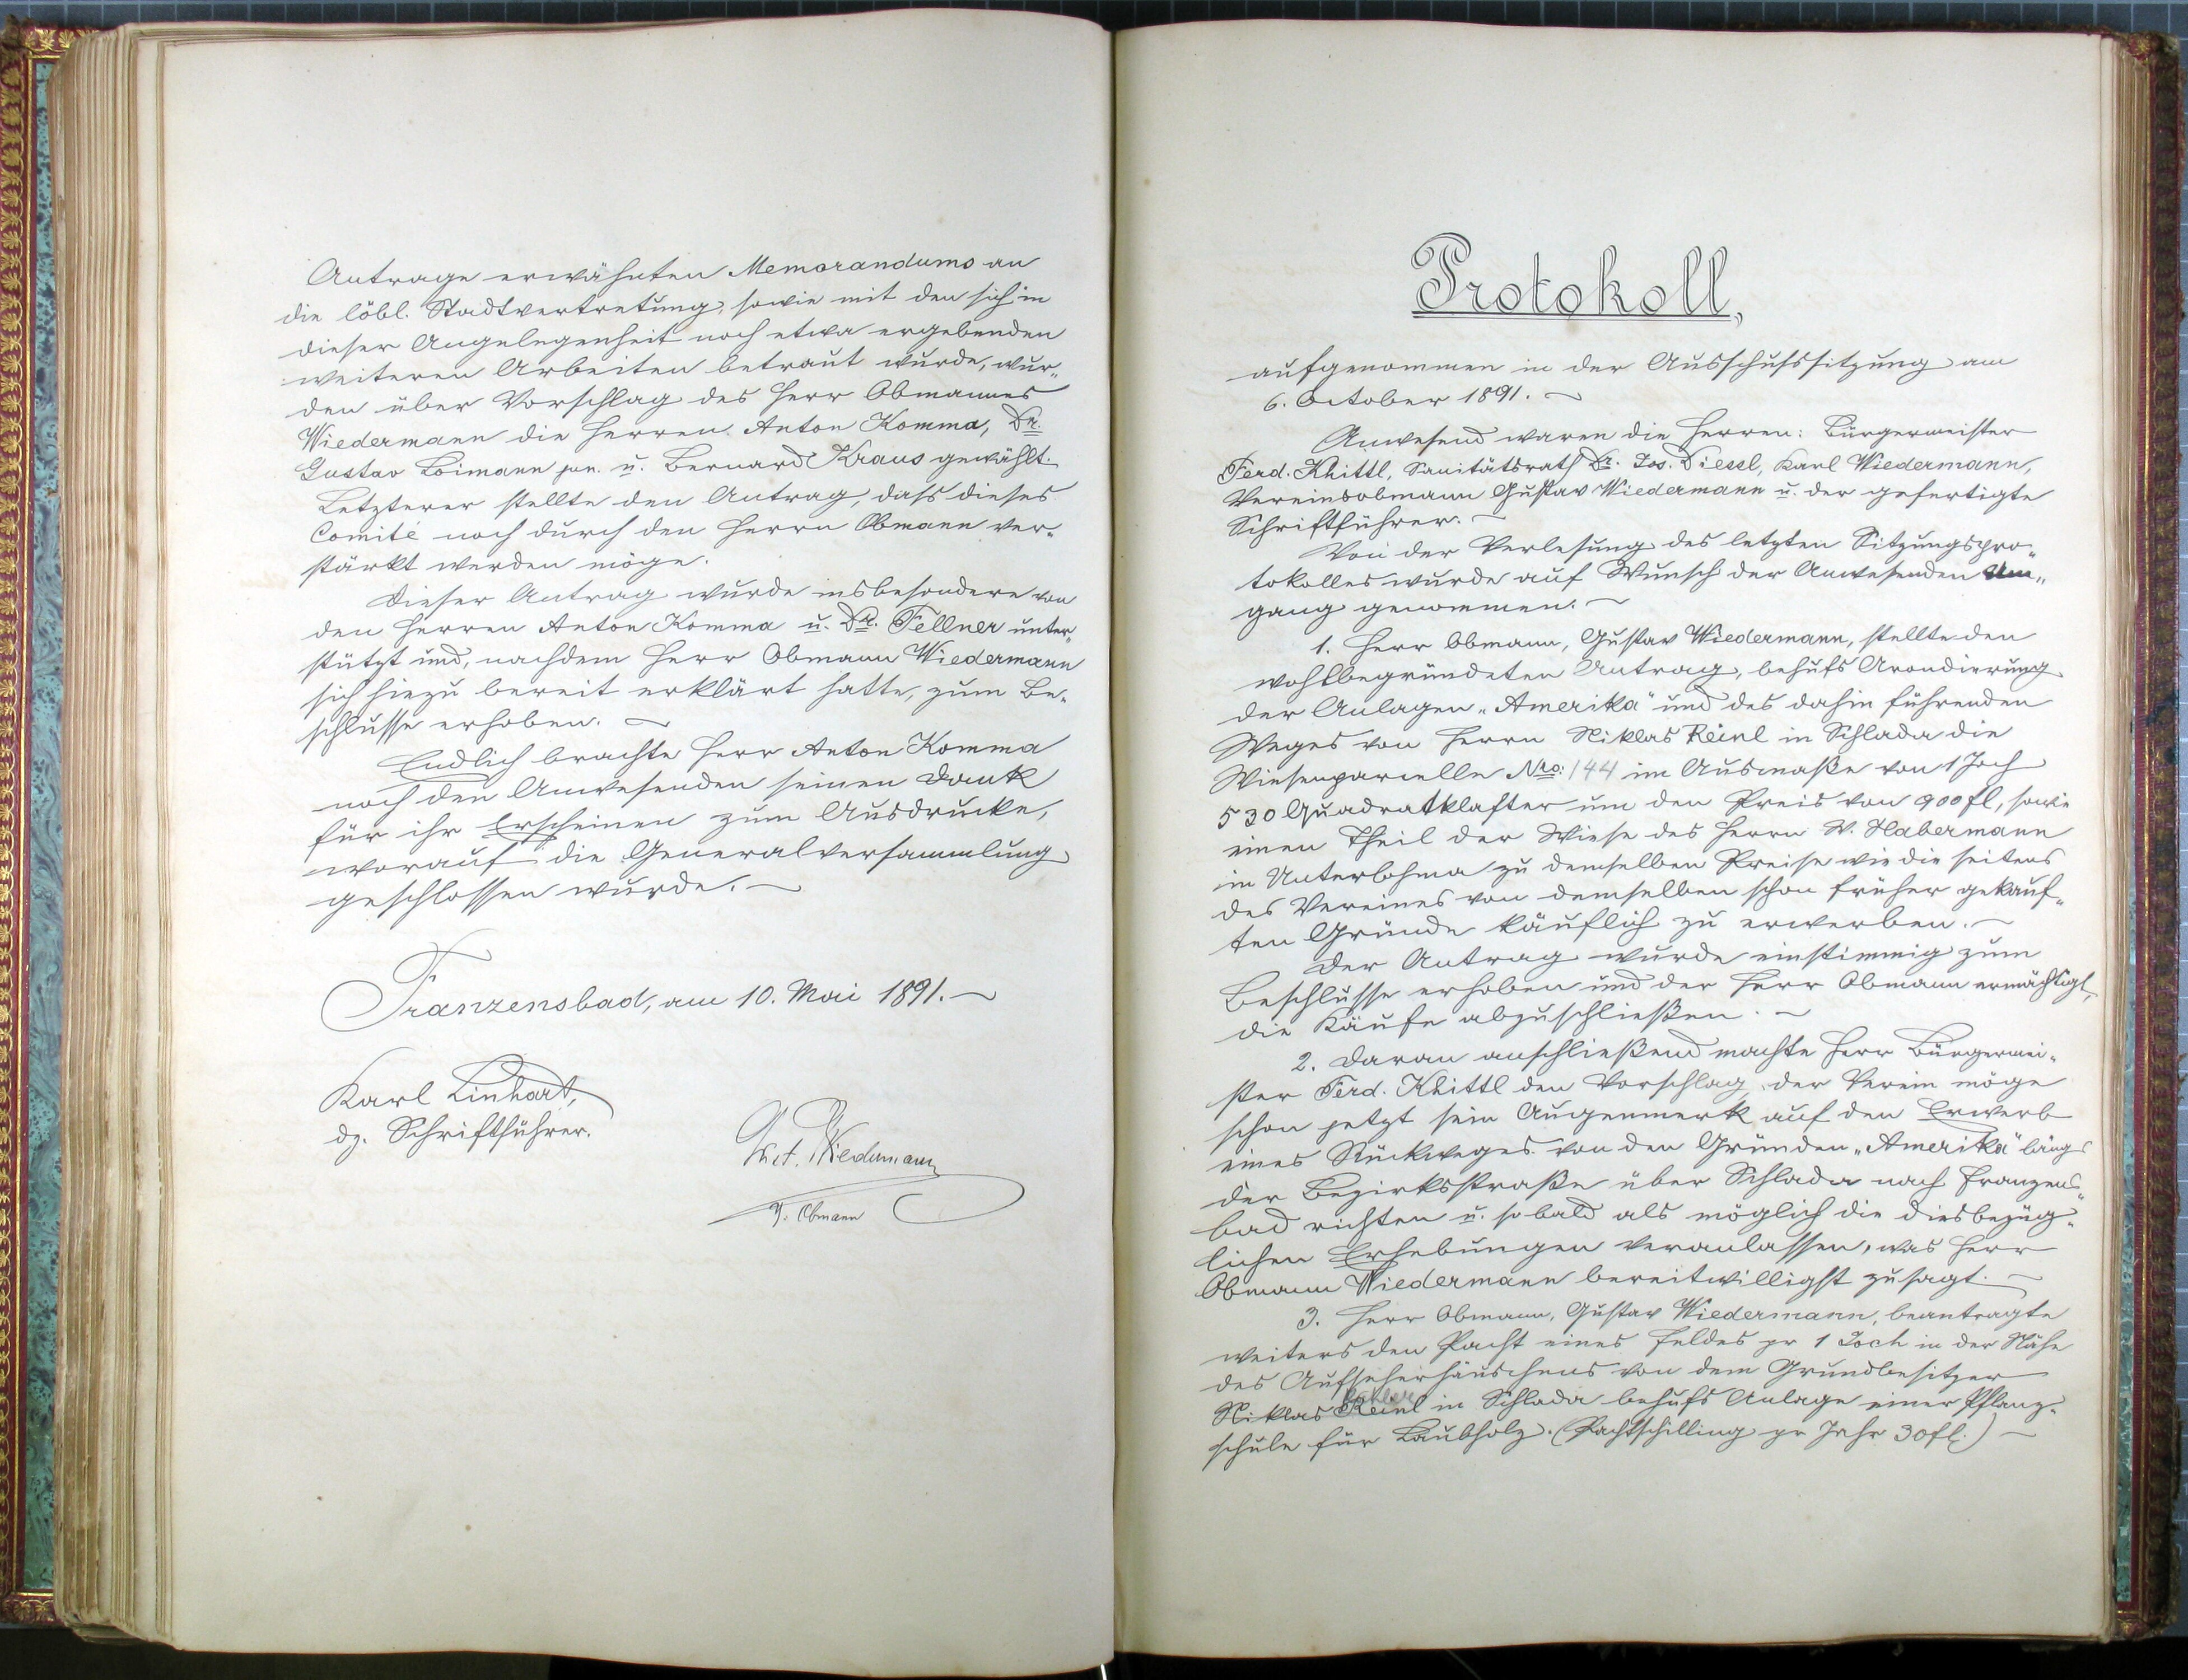 Antrage erwähnten Memorandums an
die löbl. Stadtvertretung, sowie mit den sich in
dieser Angelegenheit noch etwa ergebenden
weiteren Arbeiten betraut wurde, wur„
den über Vorschlag des Herr Obmannes
Wiedermann die Herren Anton Komma, Dr.
Gustav Loimann jun. u. Bernard Kraus gewählt.
Letzterer stellte den Antrag, dass dieses
Comité noch durch den Herrn Obmann ver„
stärkt werden möge.
Dieser Antrag wurde insbesondere von
den Herren Anton Komma u. Dr. Fellner unter„
stützt und, nachdem Herr Obmann Wiedermann
sich hiezu bereit erklärt hatte, zum Be„
schlusse erhoben. —
Endlich brachte Herr Anton Komma
noch den Anwesenden seinen Dank
für ihr Erscheinen zum Ausdrucke,
worauf die Generalversammlung
geschlossen wurde. —
Franzensbad, am 10. Mai 1891. —
Karl Linhart,
dz. Schriftführer.
Wiedermann
Obmann
Protokoll,
aufgenommen in der Ausschußsitzung am
6. October 1891. —
Anwesend waren die Herren: Bürgermeister
Ferd. Khittl, Sanitätsrath Dr. Jos. Diessl, Karl Wiedermann,
Vereinsobmann Gustav Wiedermann u. der gefertigte
Schriftführer. —
Von der Verlesung des letzten Sitzungspro„
tokolles wurde auf Wunsch der Anwesenden Um„
gang genommen. —
1. Herr Obmann, Gustav Wiedermann, stellte den
wohlbegründeten Antrag, behufs Arondierung
der Anlagen „Amerika" und des dahin führenden
Weges von Herrn Niklas Reinl in Schlada die
Wiesenparcelle Nro: 144 im Ausmaße von 1 Joch
530 Quadratklafter um den Preis von 900 fl, sowie
einen Theil der Wiese des Herrn W. Habermann
in Unterlohma zu demselben Preise wie die seitens
des Vereines von demselben schon früher gekauf„
ten Gründe käuflich zu erwerben. —
Der Antrag wurde einstimmig zum
Beschlusse erhoben und der Herr Obmann ermächtigt,
die Käufe abzuschließen. —
2. Daran anschließend machte Herr Bürgermei„
ster Ferd. Khittl den Vorschlag der Verein möge
schon jetzt sein Augenmerk auf den Erwerb
eines Rückweges von den Gründen „Amerika" längs
der Bezirksstraße über Schlada nach Franzens„
bad richten u. sobald als möglich die diesbezüg„
lichen Erhebungen veranlassen, was Herr
Obmann Wiedermann bereitwilligst zusagt. —
3. Herr Obmann, Gustav Wiedermann, beantragte
weiters den Pacht eines Feldes pr 1 Joch in der Nähe
des Aufseherhäuschens von dem Grundbesitzer
Niklas Reinl in Schlada behufs Anlage einer Pflanz„
schule für Laubholz. (Pachtschilling pr Jahr 30 fl.) —